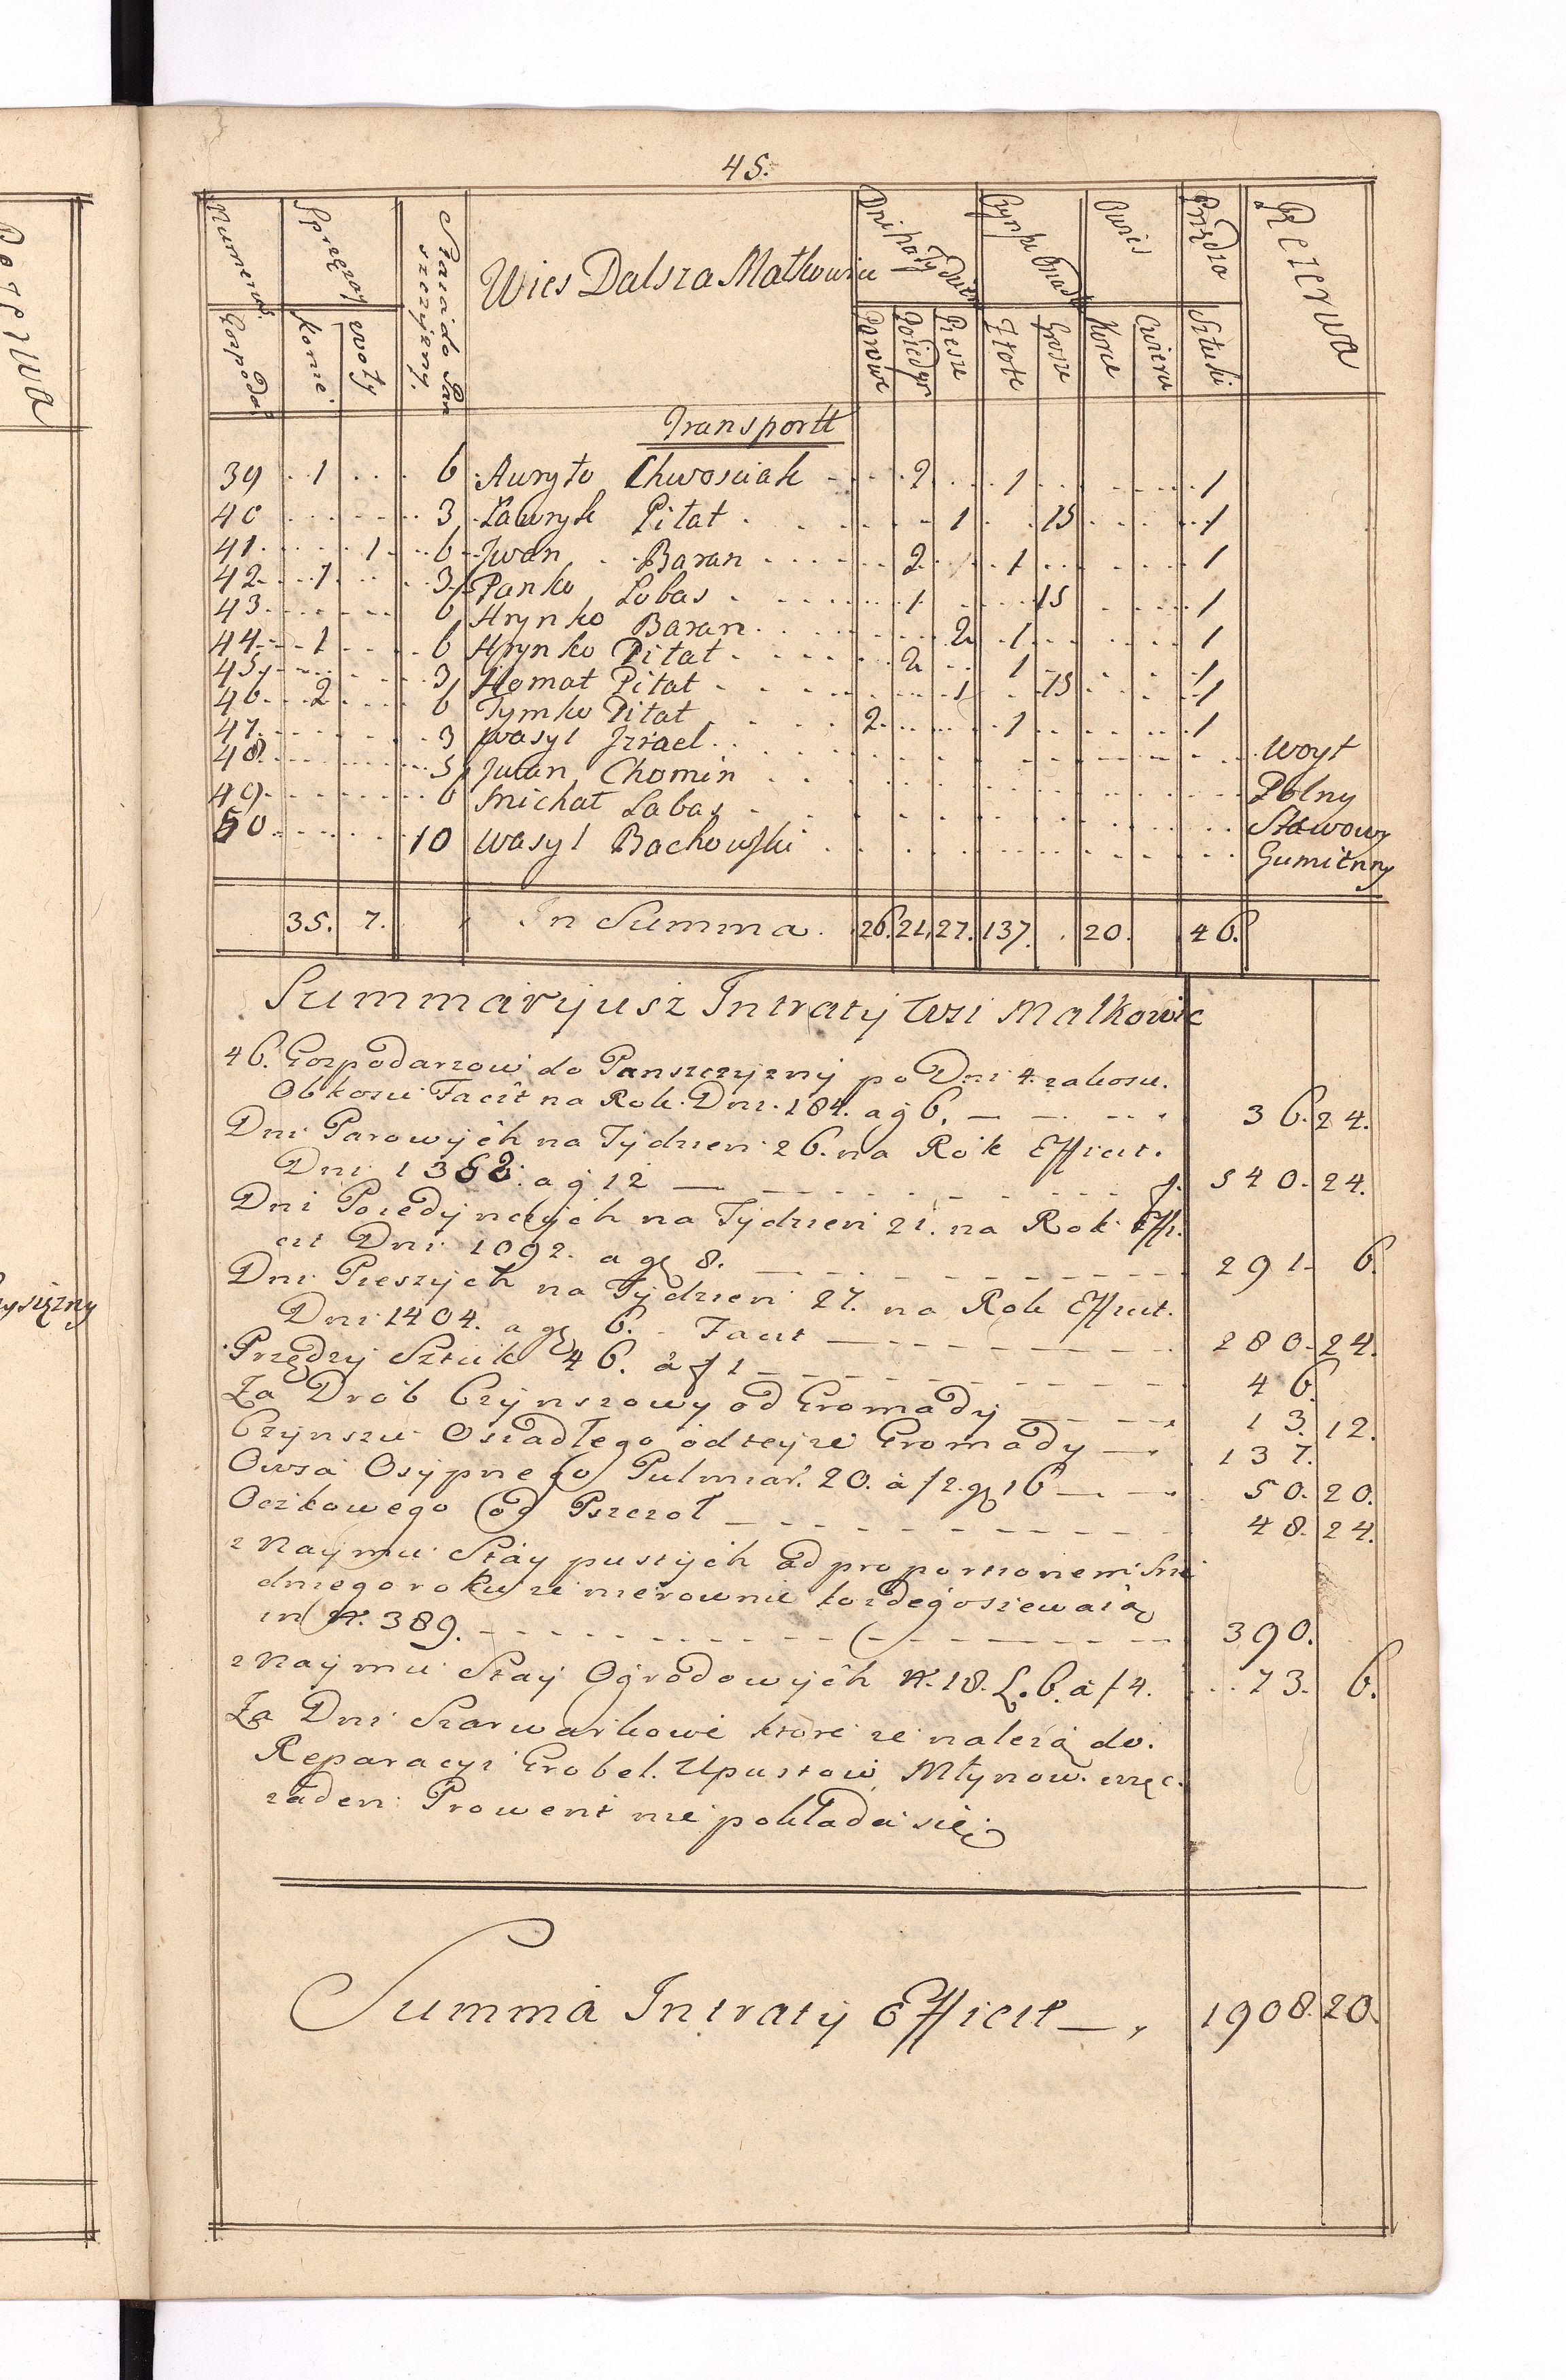 45.
Numerus Gospoda
Sprzężay
konie
woły
Staia do Pan
szczyzny.
Wies Dalsza Małkowice
Dni na Tydzień
Parowe
Poiedyn
Piesze
Czynsz Osiadł
Złote
Grosze
Owies
Korce
Cwierci
Przędza
Sztuki
Rezerwa
Transportt
39 1 6 Awryło Chwosciak 2 1 1
40 3 Ławryk Piłat 1 15 1
41. 1 6 Jwan Baran 2 1 1
42 1 3 Panko Łobas 1 15 1
43. 6 Hrynko Baran 2 1 1
44 1 6 Hrynko Piłat 2 1 1
45 3 Homat Piłat 1 15 1
46 2 6 Tymko Piłat 2 1 1
47. 3 Wasyl Jzrael woyt
48. 5 Jwan Chomin Polny
49 6 Michał Łabas Stawowy
50 10 Wasyl Bachowski Gumienny
35. 7. In Summa. 26. 21. 27. 137. 20. 46.
Summaryusz Intraty Wsi Małkowic
46. Gospodarzow do Panszczyzny po Dni 4. zakosu.
Obkosu Facit na Rok Dni. 184. a g 6. 36. 24.
Dni Parowych na Tydzien 26. na Rok Efficit.
Dni 1352. a g 12 f. 540. 24.
Dni Poiedynczych na Tydzien 21. na Rok Effi
cit Dni 1092. a g 8. 291. 6.
Dni Pieszych na Tydzien 27. na Rok Efficit.
Dni 1404. a g 6. Facit 280. 24.
Przędzy Sztuk 46. a f 1 46.
Za Drob Czynszowy od Gromady 13. 12.
Czynszu Osiadłego od teyze Gromady 137.
Owsa Osypnego Pulmiar. 20. a f 2. g 16 50. 20.
Oczkowego od Pszczoł 48. 24.
z Naymu Stay pustych ad proportionem
dniego roku ze nierownie kozdego siewaią
in N. 389. 390.
z Naymu Stay Ogrodowych N. 18. L. 6. a f 4. 73. 6.
Za Dni Szarwarkowe ktore ze nalezą do
Reparacyi Grobel. Upustow Młynow. więc
zaden Prowent nie pokłada się.
Summa Intraty Efficit 1908. 20.